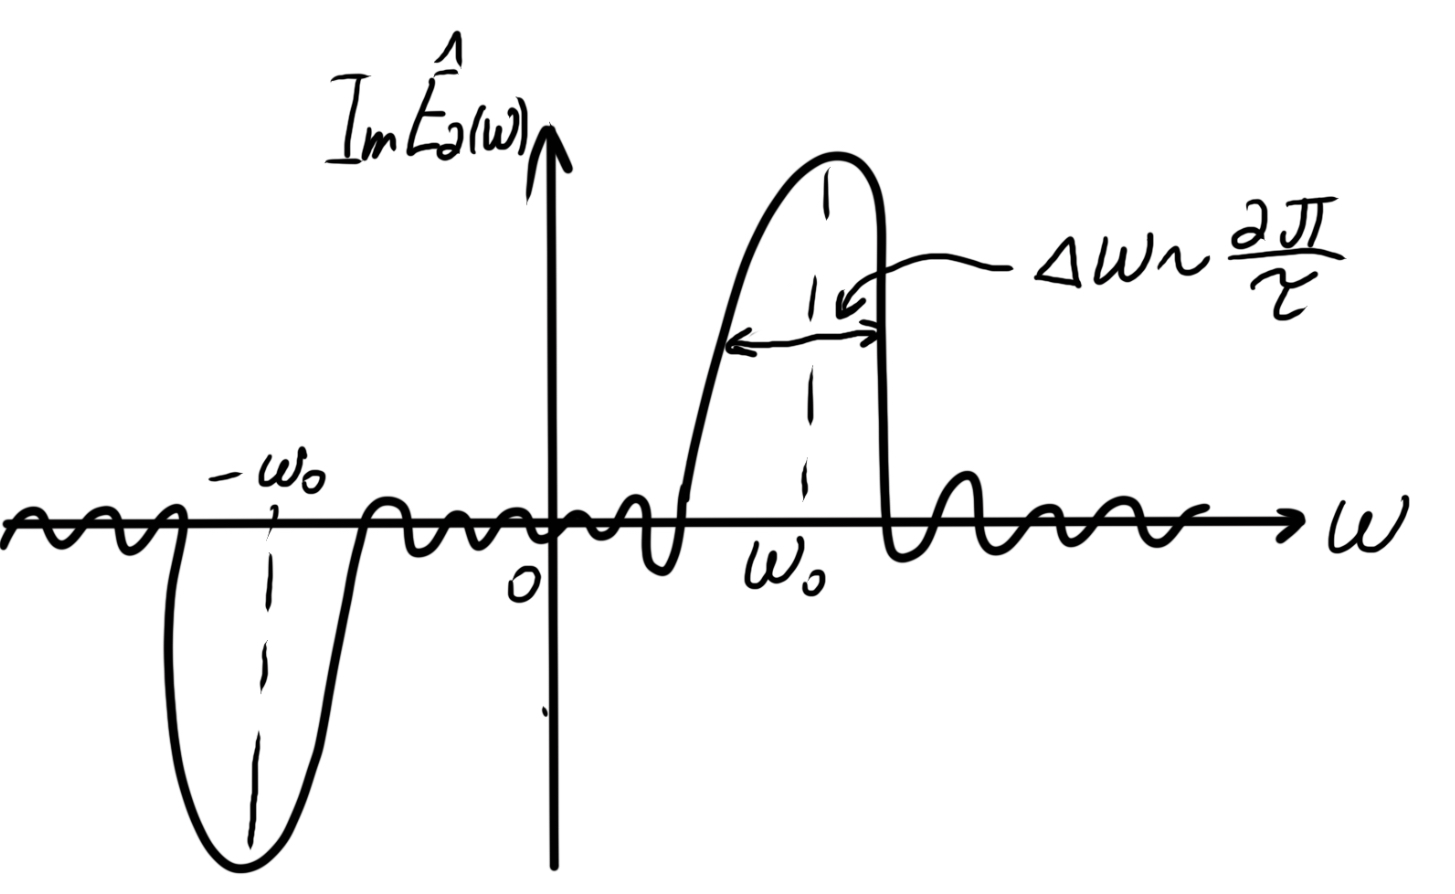 Im Ê₂(ω)
Δω ~ 2π/τ
-ω₀
0
ω₀
ω